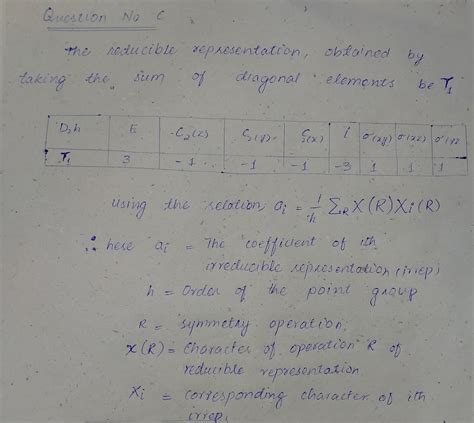 Question No C
The reducible representation, obtained by
taking the sum of diagonal elements be Γ1
D2h E C2(z) C2(y) C2(x) i σ(xy) σ(xz) σ(yz
Γ1 3 -1 -1 -1 -3 1 1 1
using the relation, ai = 1/h ΣR X(R)Xi(R)
∴ here ai = The coefficient of ith
irreducible representation (irrep)
h = Order of the point group
R = symmetry operation.
X(R) = Character of operation R of
reducible representation
Xi = corresponding character of ith
irrep.